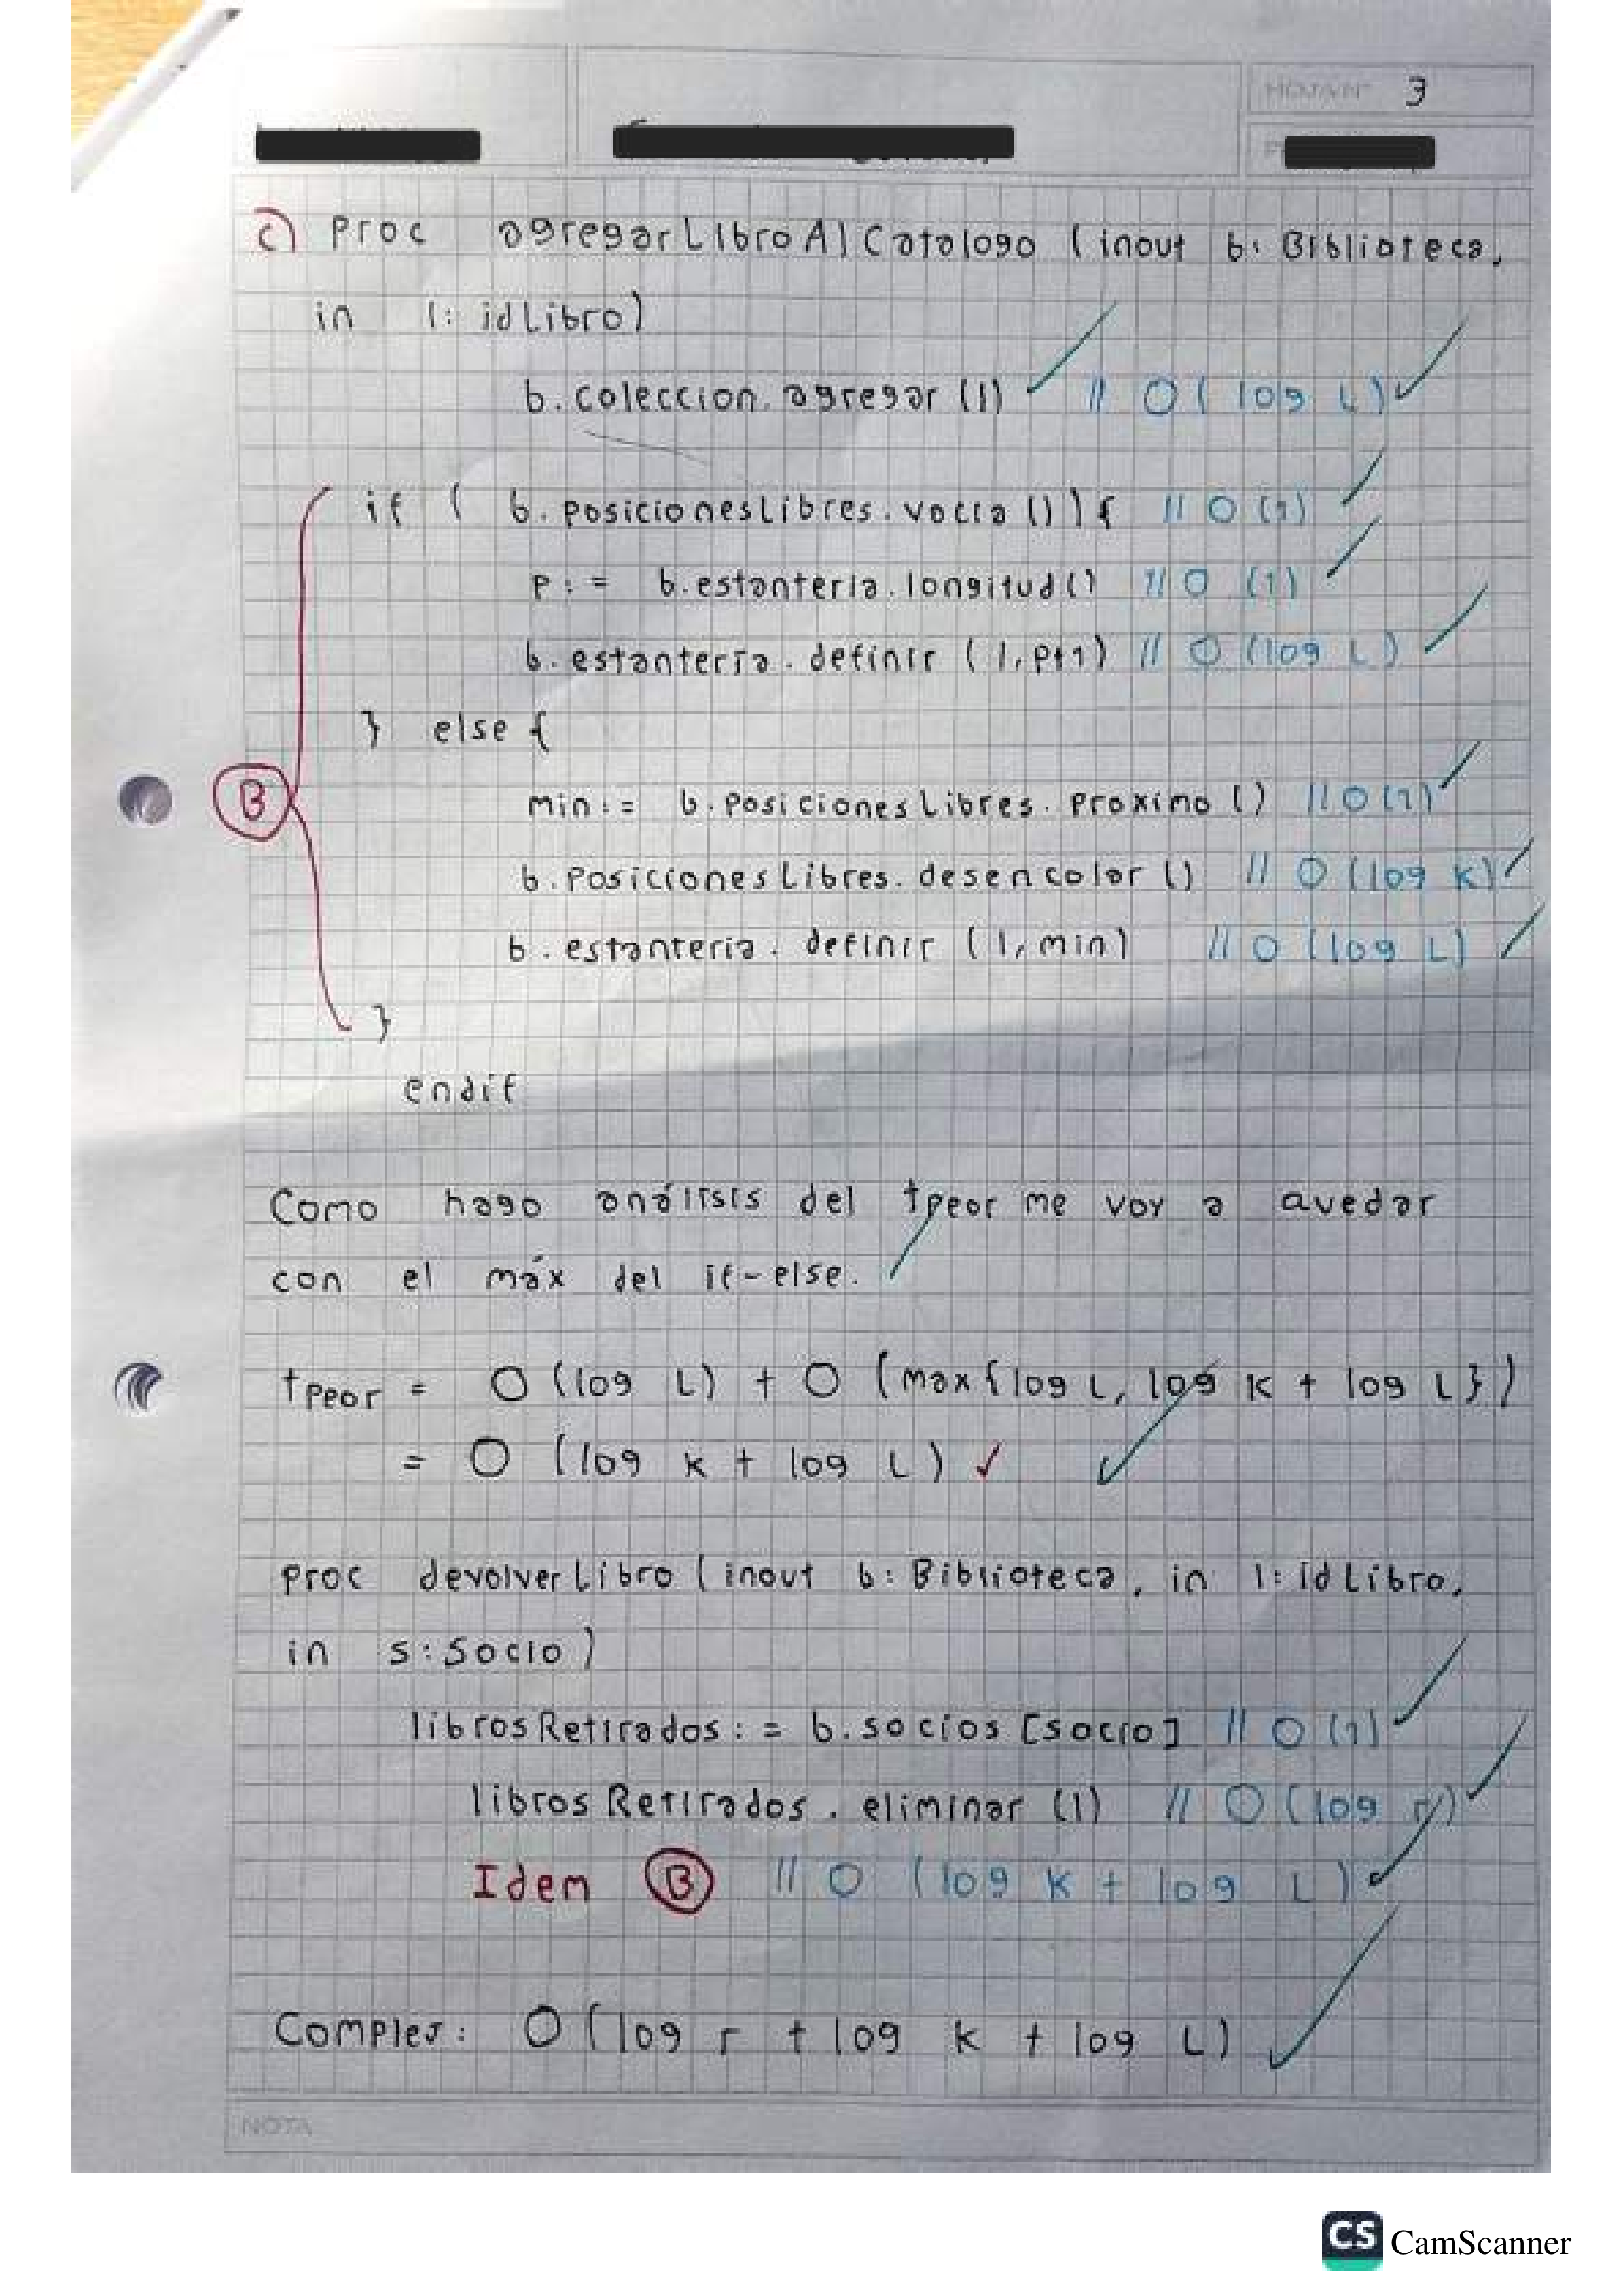 HOJA Nº 3
c) Proc agregarLibroAlCatalogo (inout b: Biblioteca,
in l: idLibro)
b.coleccion.agregar (l) // O(log L)
if ( b.posicionesLibres.vacia ()) { // O (1)
p := b.estanteria.longitud() // O (1)
b.estanteria.definir (l, p+1) // O (log L)
} else {
B
min := b.posicionesLibres.proximo () // O(1)
b.posicionesLibres.desencolar () // O (log k)
b.estanteria.definir (l, min) // O (log L)
}
endif
Como hago análisis del tpeor me voy a quedar
con el máx del if-else.
tpeor = O (log L) + O (max{log L, log k + log L})
= O (log k + log L)
proc devolverLibro (inout b: Biblioteca, in l: idLibro,
in s: Socio)
librosRetirados := b.socios [socio] // O (1)
librosRetirados.eliminar (l) // O (log r)
Idem B // O (log k + log L)
Complej: O (log r + log k + log L)
NOTA
CS CamScanner